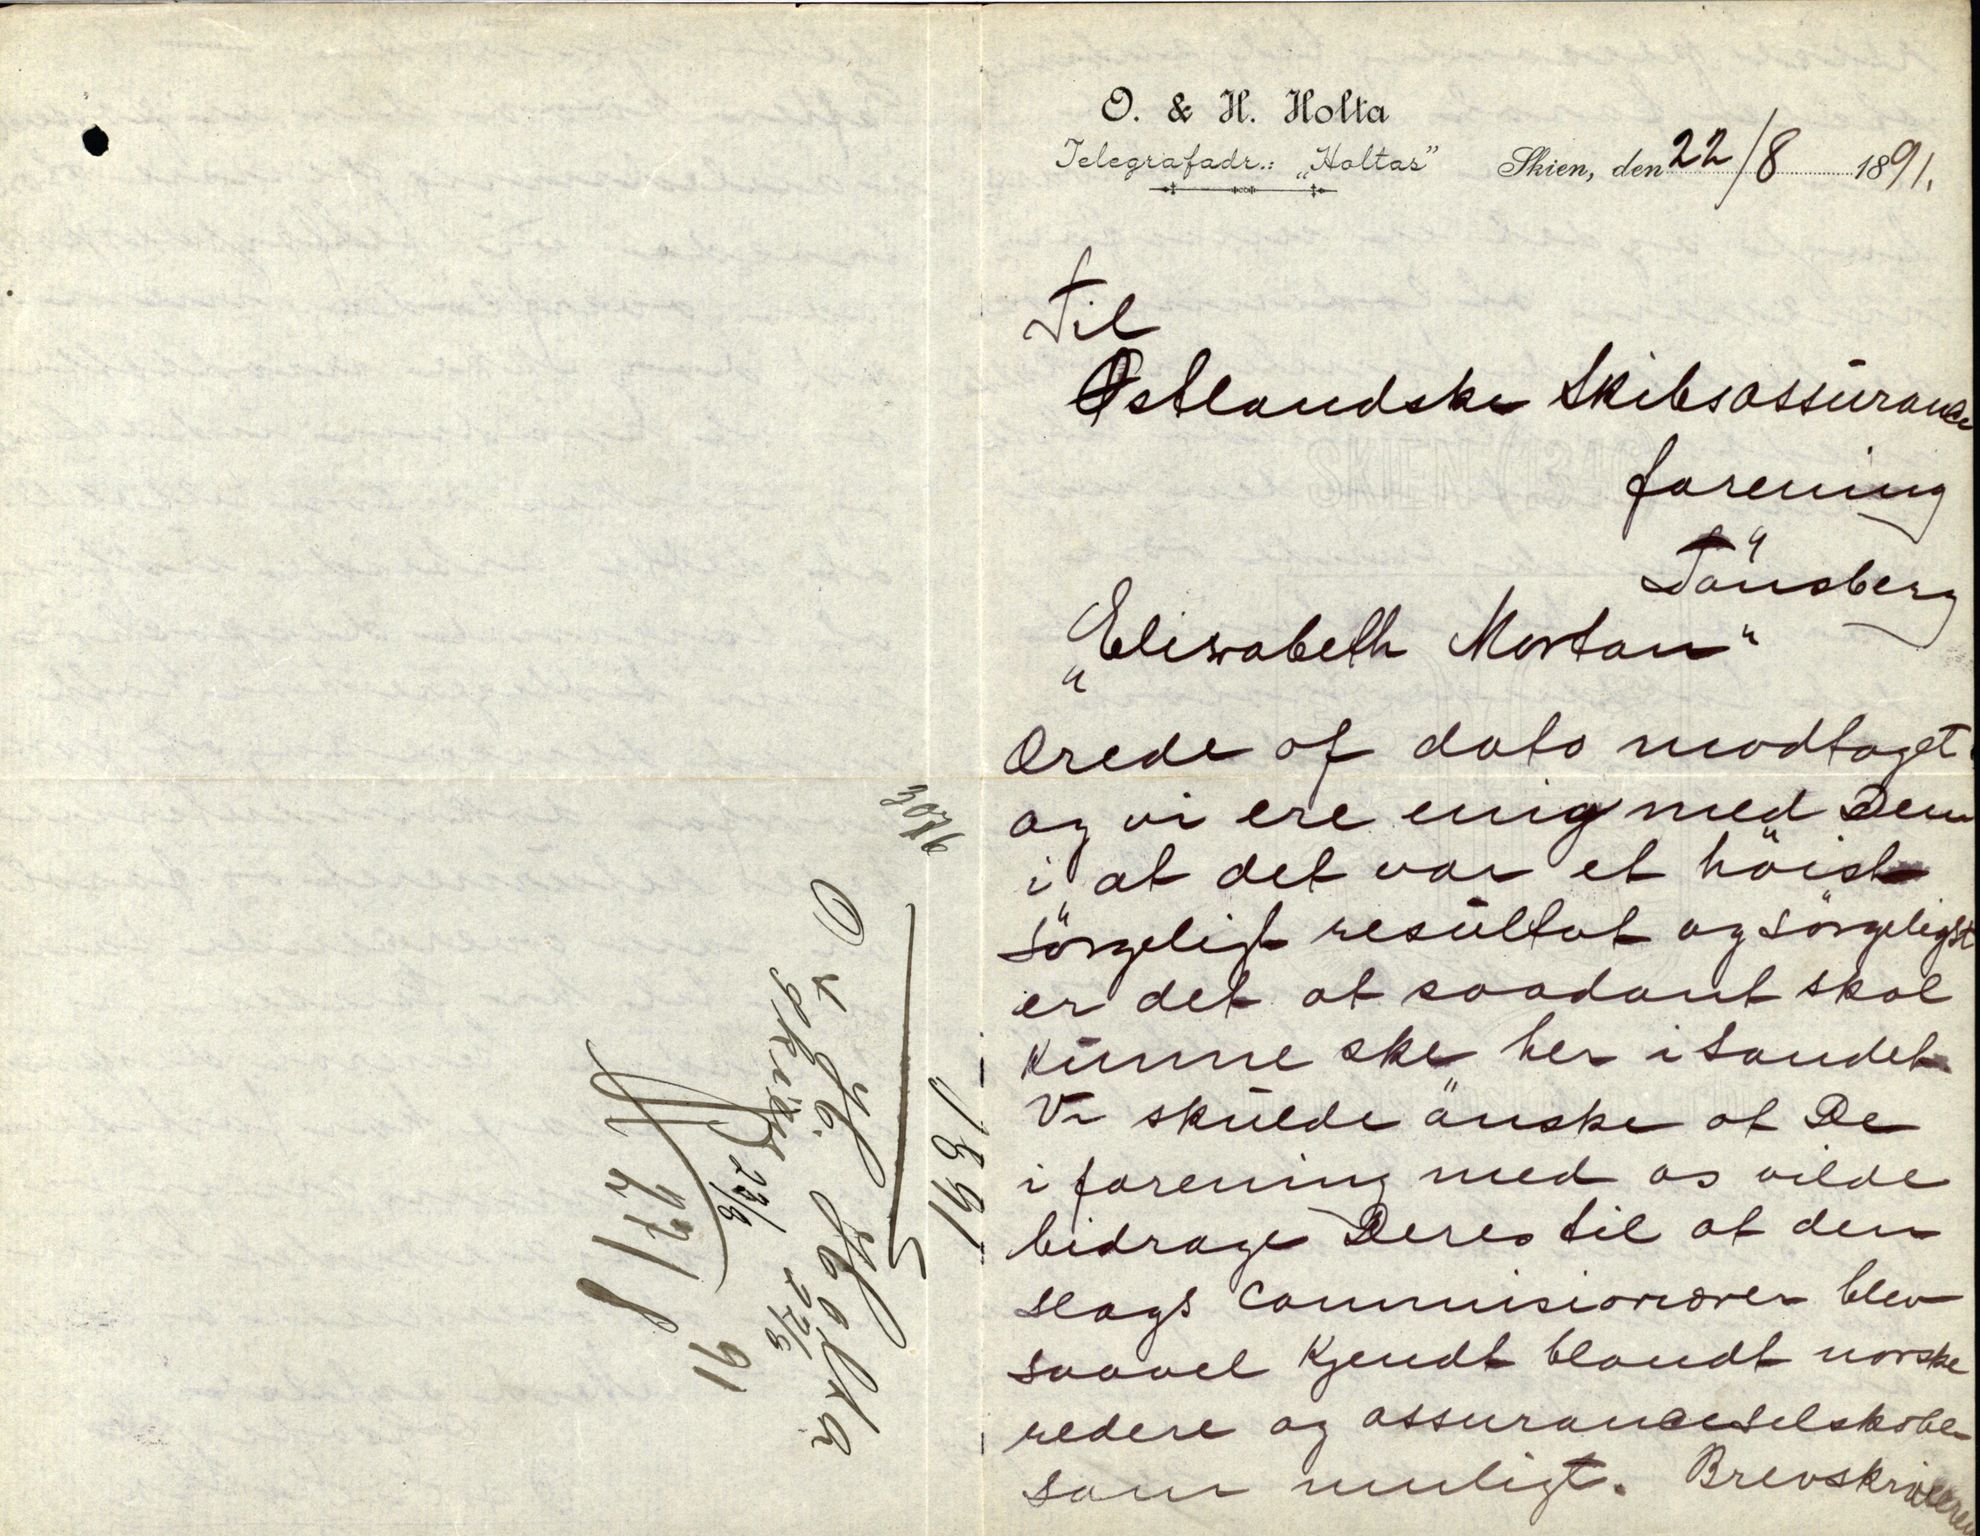 O. & H. Holta
Telegrafadr.: „Holtas”
Skien, den 22/8 1891.
Til
Østlandske Skibsassurance
forening
Tönsberg
„Elisabeth Mortan“
Ærede af dato modtaget
og vi ere enig med Dem
i at det var et höist
sörgeligt resultat og sörgeligst
er det at saadant skal
kunne ske her i Landet.
Vi skulde önske at De
i forening med os vilde
bidrage Deres til at den
slags Commisionærer blev
saavel kjendt blandt norske
redere og assuranceselskaber
som muligt. Brevskriveren
1891
O & H. Holta
Skien 22/8 27/8
A 271
91